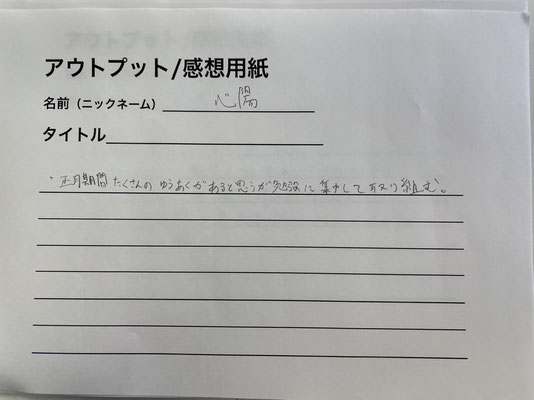 アウトプット/感想用紙
名前（ニックネーム） 心陽
タイトル
・正月期間たくさんのゆうあくがあると思うが勉強に集中して取り組む。